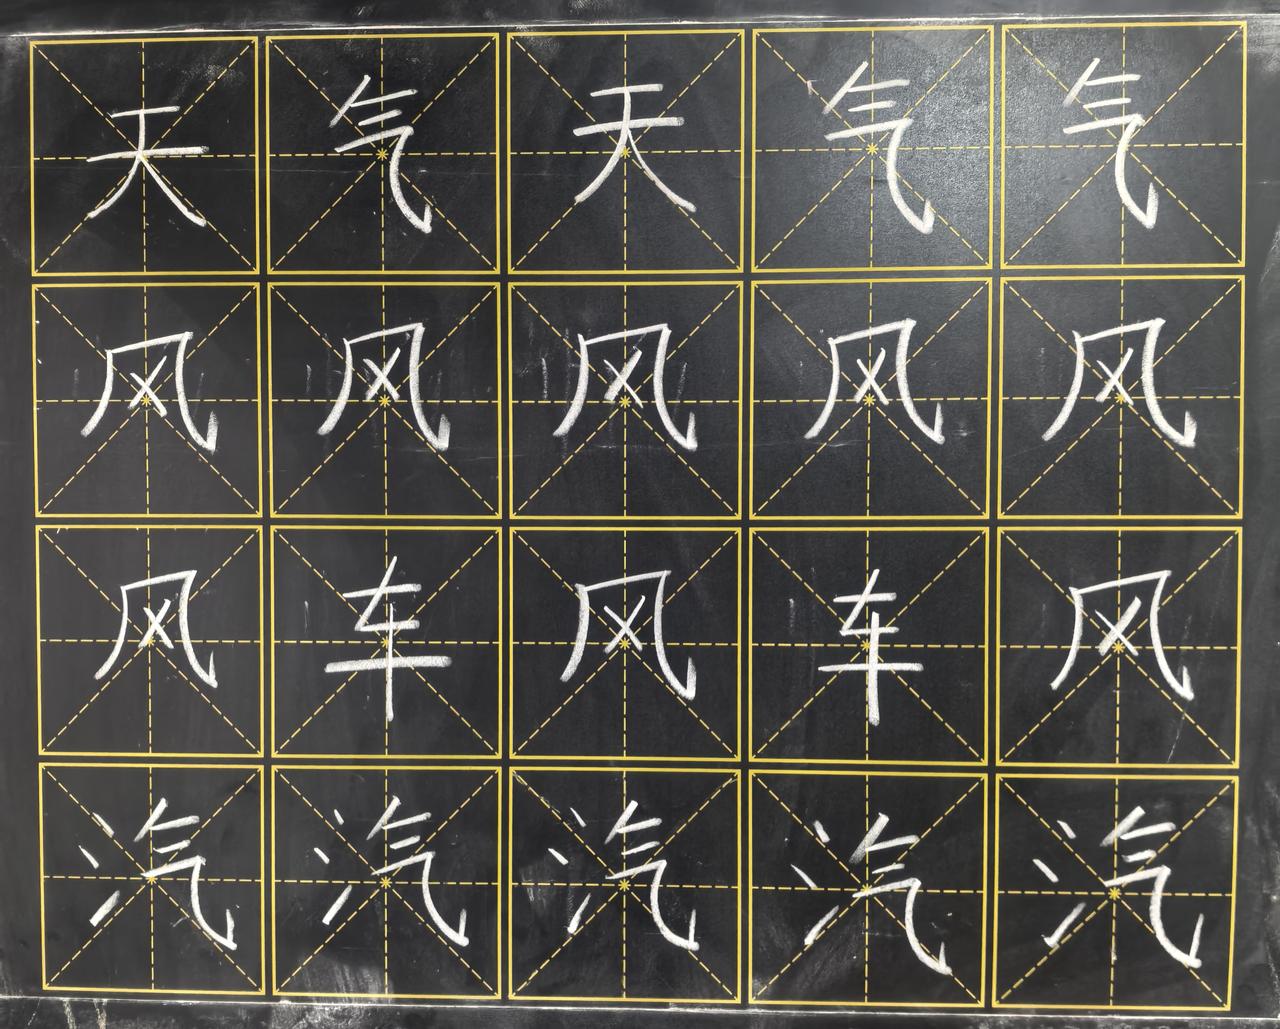 天气天气气
风风风风风
风车风车风
汽汽汽汽汽